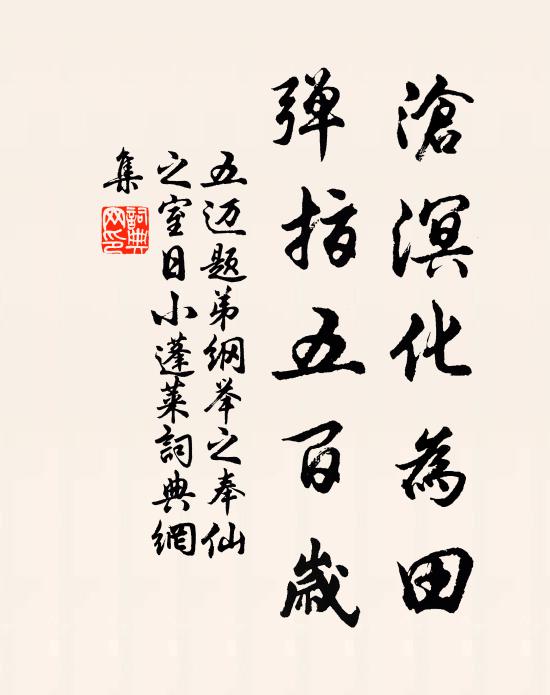 滄溟化為田
弹指五百歲
五迈題弟綱举之奉仙
之室日小蓬萊詞典網
集
詞典
网印